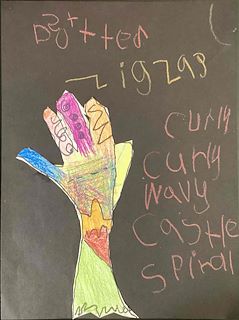 zigzag
curly
curly
wavy
castle
spiral